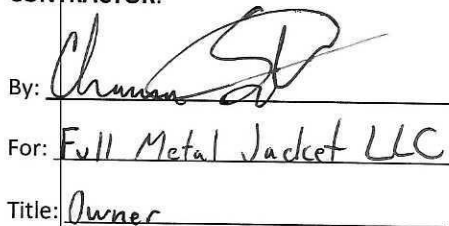 CONTRACTOR:
By:
For: Full Metal Jacket LLC
Title: Owner